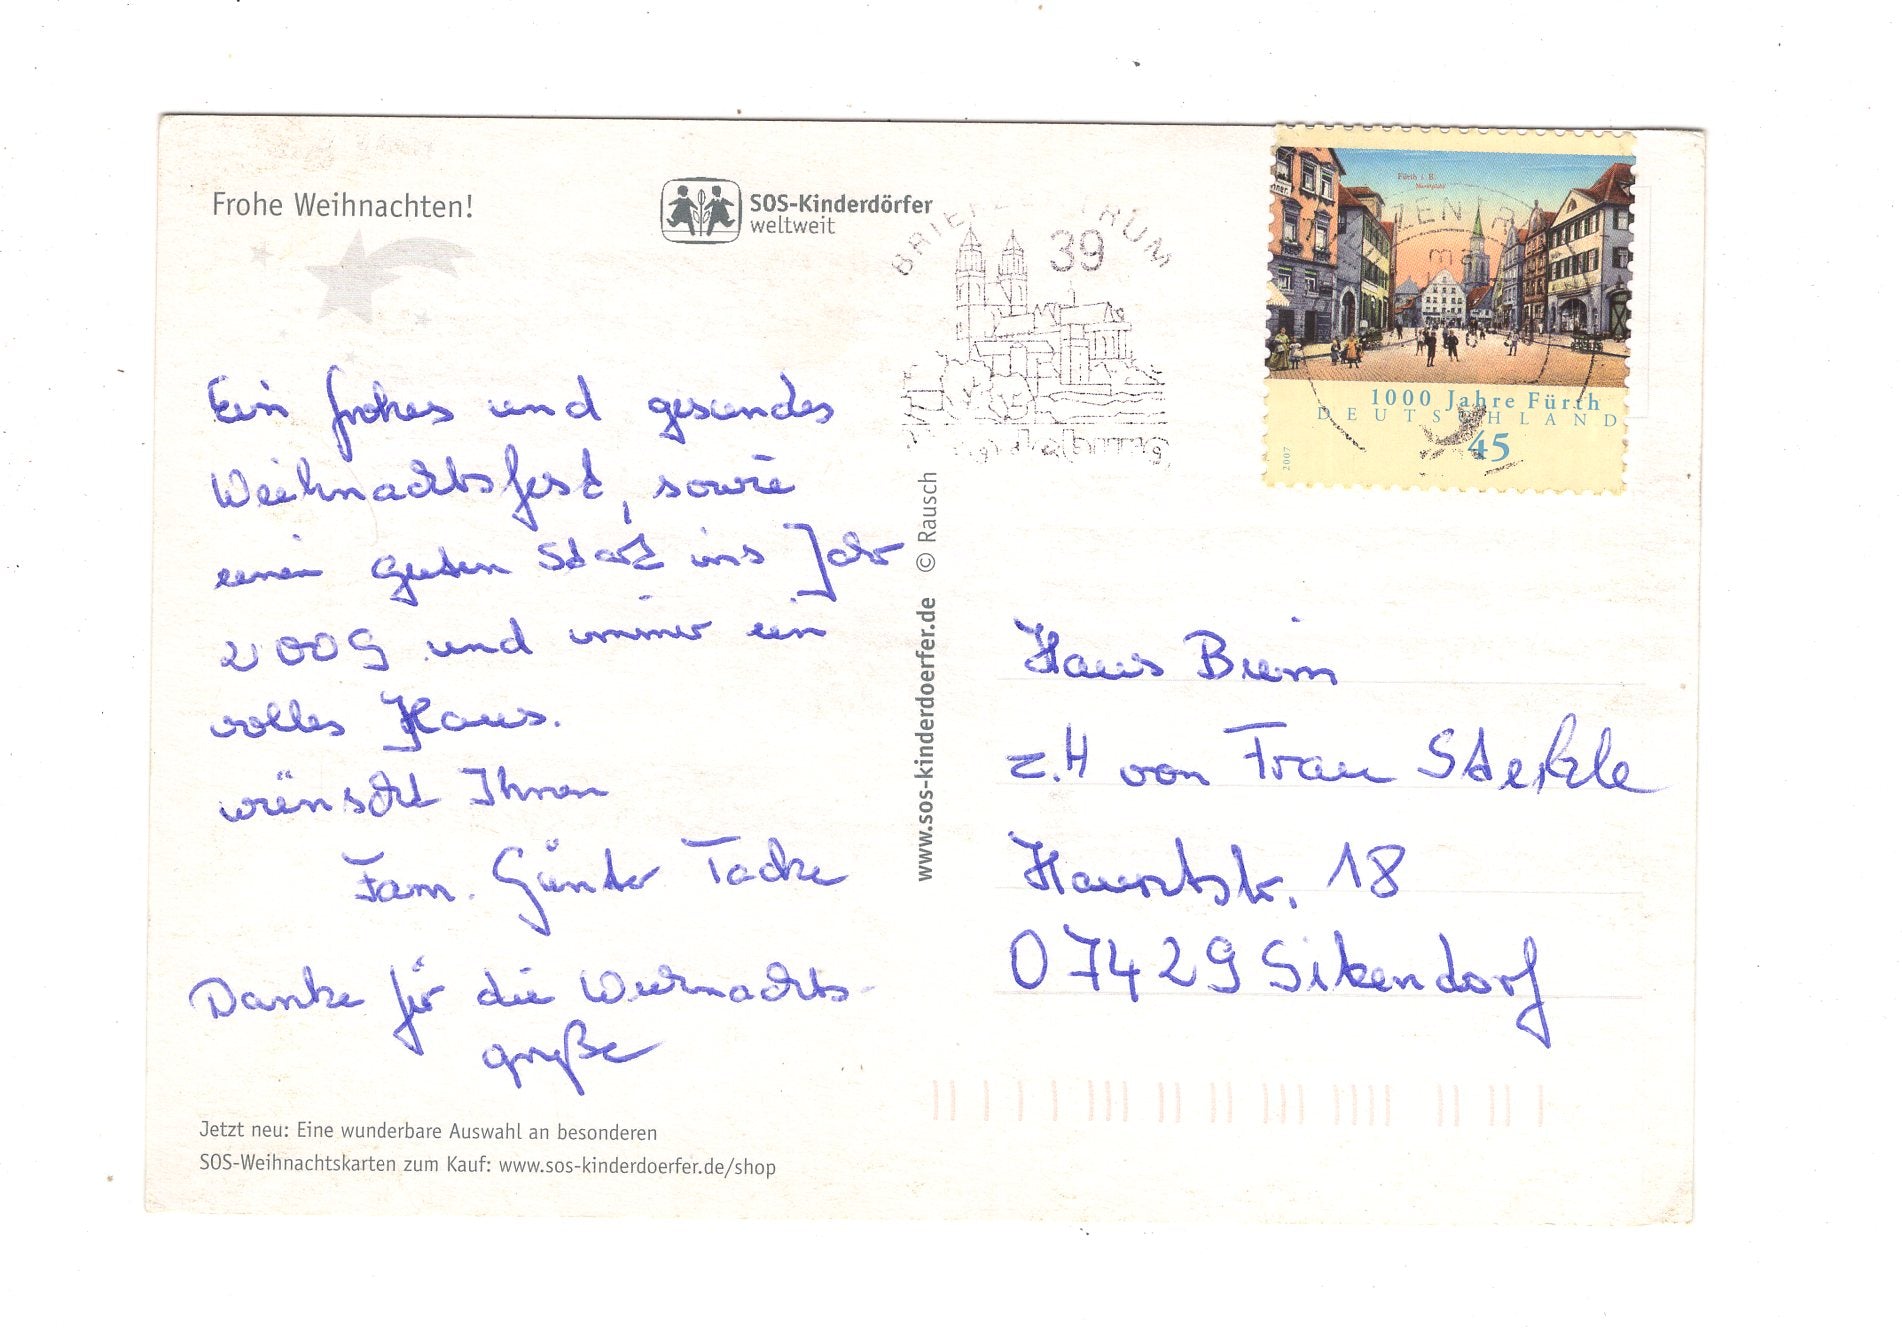 Frohe Weihnachten!
SOS-Kinderdörfer
weltweit
BRIEFZENTRUM
39
Fürth i. B.
Marktplatz
ZENTR
1000 Jahre Fürth
DEUTSCHLAND
45
2007
Ein frohes und gesundes
Weihnachtsfest, sowie
einen guten Start ins Jahr
2009 und immer ein
volles Haus.
wünscht Ihnen
Fam. Günter Tacke
Danke für die Weihnachts-
grüße
www.sos-kinderdoerfer.de © Rausch
Haus Bium
z.H von Frau Sterkle
Hauptstr. 18
07429 Sitzendorf
Jetzt neu: Eine wunderbare Auswahl an besonderen
SOS-Weihnachtskarten zum Kauf: www.sos-kinderdoerfer.de/shop